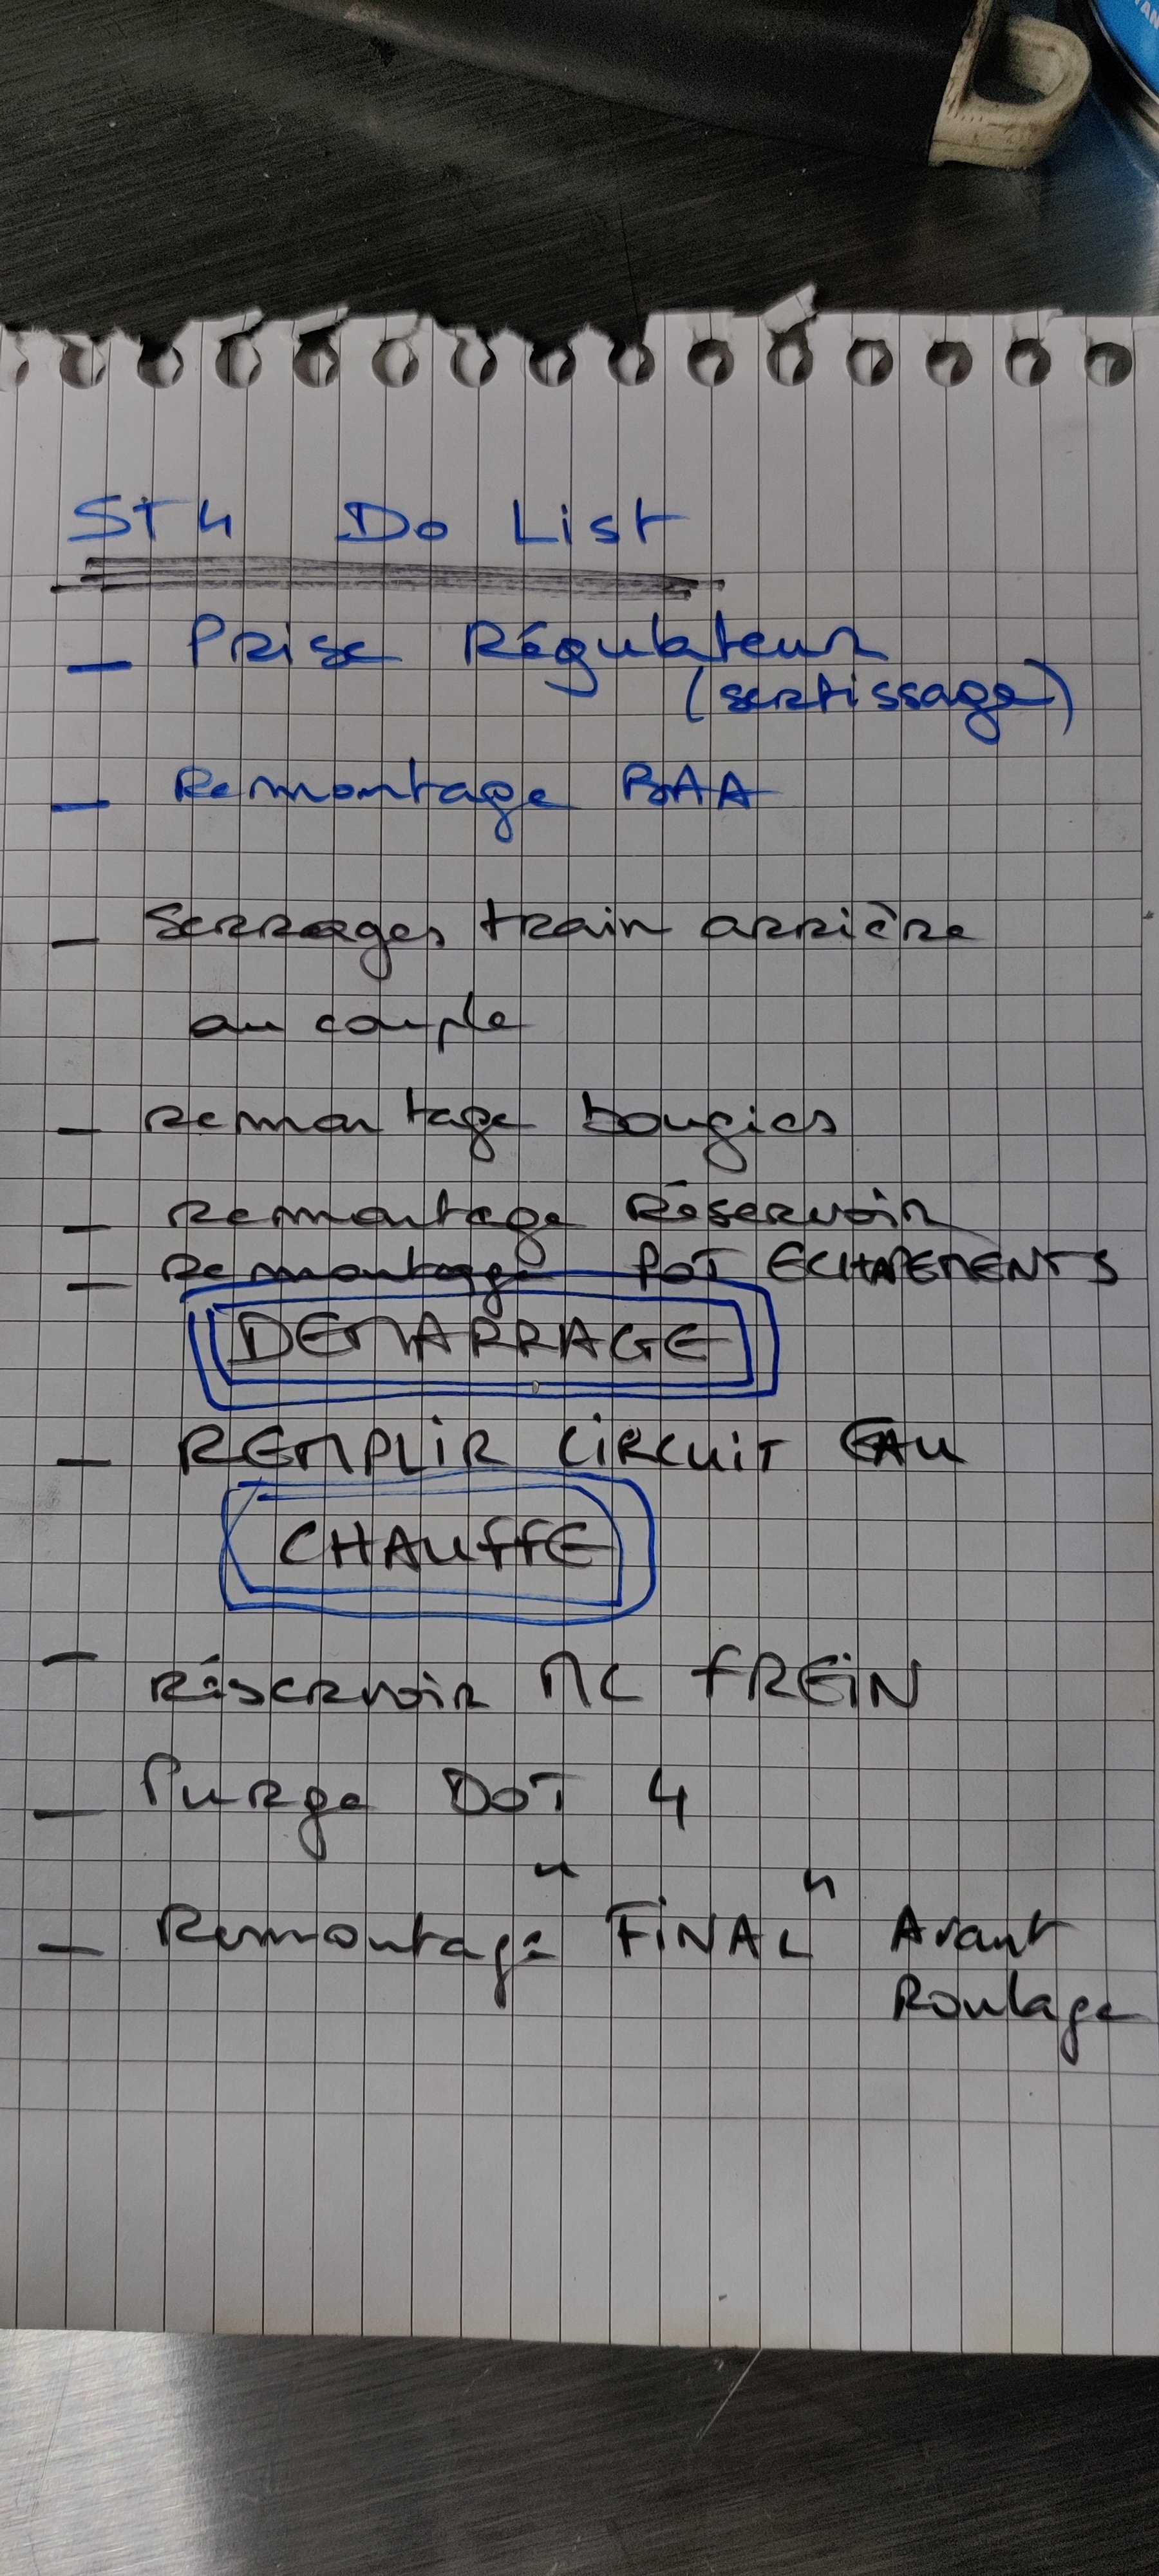 ST4 Do List
- Prise Régulateur
(sertissage)
- Remontage BAA
- Serrages train arrière
au couple
- remontage bougies
- Remontage Réservoir
- Remontage POT ECHAPEMENTS
DEMARRAGE
- REMPLIR CIRCUIT EAU
CHAUFFE
- Réservoir MC FREIN
- Purge DOT 4
- Remontage "FINAL" Avant
Roulage